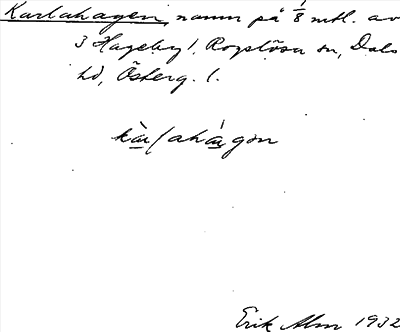 Karlahagen, namn på 1/8 mtl. av
3 Hageby l. Rogslösa sn, Dals
hd, Österg. l.
Erik Alm 1932